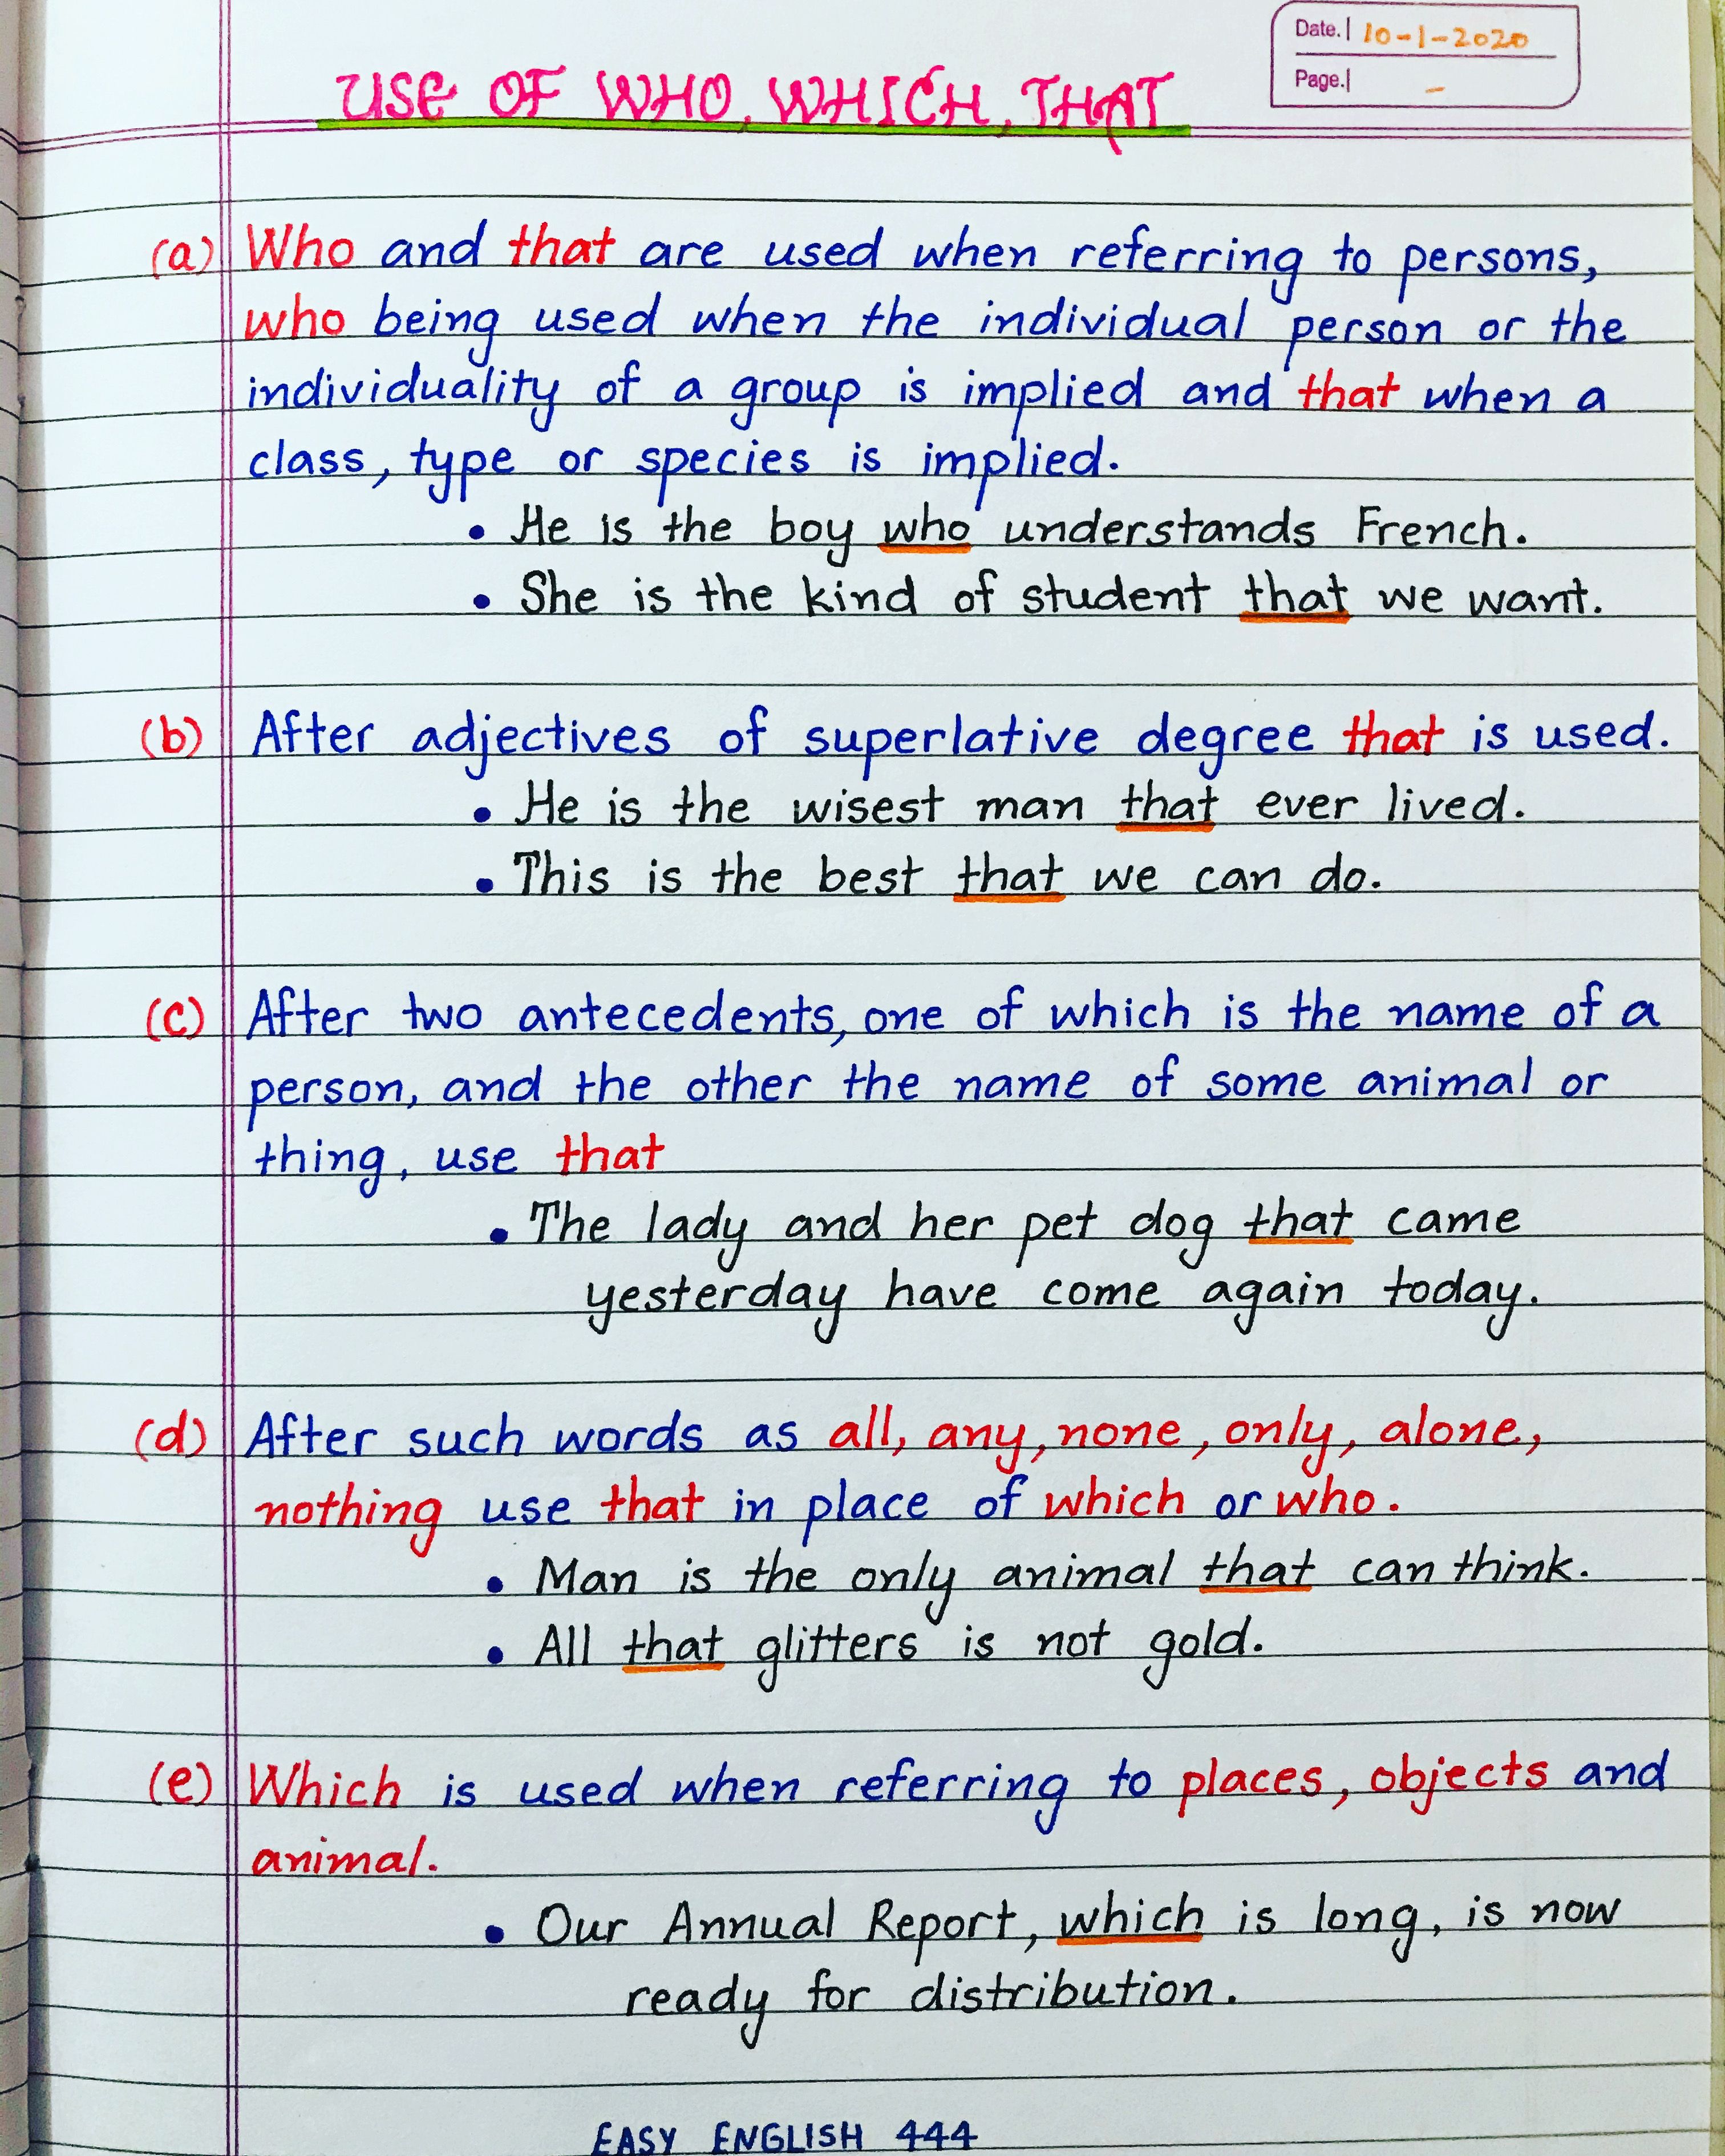 Date. 10-1-2020
Page. -
USE OF WHO, WHICH, THAT
(a) Who and that are used when referring to persons,
who being used when the individual person or the
individuality of a group is implied and that when a
class, type or species is implied.
• He is the boy who understands French.
• She is the kind of student that we want.
(b) After adjectives of superlative degree that is used.
• He is the wisest man that ever lived.
• This is the best that we can do.
(c) After two antecedents, one of which is the name of a
person, and the other the name of some animal or
thing, use that
• The lady and her pet dog that came
yesterday have come again today.
(d) After such words as all, any, none, only, alone,
nothing use that in place of which or who.
• Man is the only animal that can think.
• All that glitters is not gold.
(e) Which is used when referring to places, objects and
animal.
• Our Annual Report, which is long, is now
ready for distribution.
EASY ENGLISH 444